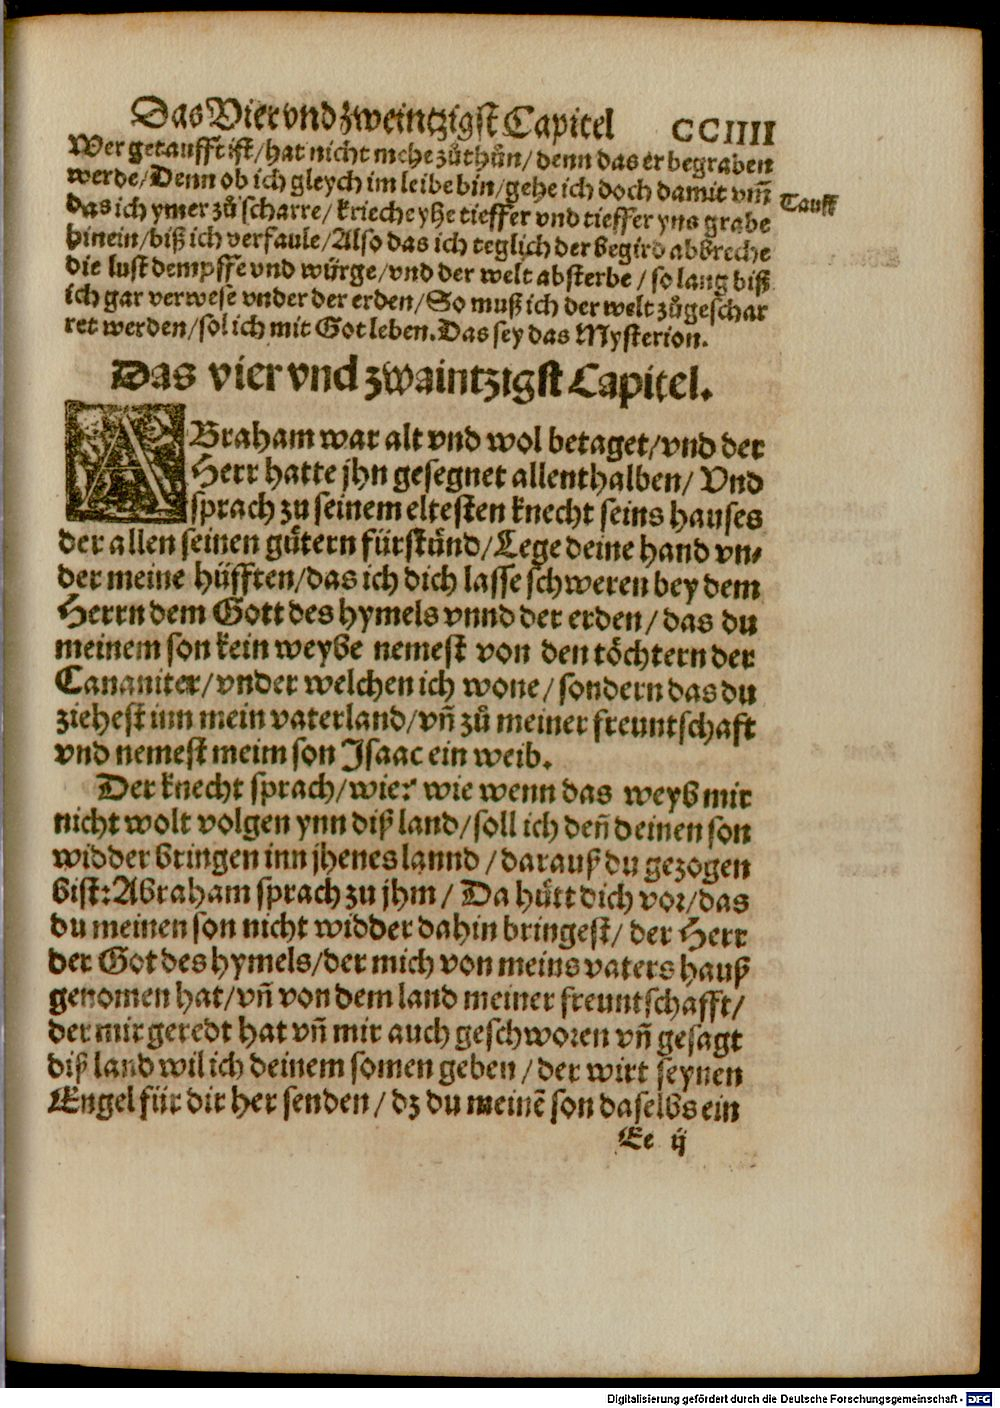 Das Vier vnd zweintzigst Capitel CCIIII
Wer getaufft ist/hat nicht mehe zů thůn/denn das er begraben
werde/Denn ob ich gleych im leibe bin/gehe ich doch damit vm̃
Tauff
das ich ymer zů scharre/krieche yhe tieffer vnd tieffer yns grabe
hinein/biß ich verfaule/Also das ich teglich der begird abbreche
die lust dempffe vnd würge/vnd der welt absterbe/so lang biß
ich gar verwese vnder der erden/So muß ich der welt zůgeschar
ret werden/sol ich mit Got leben.Das sey das Mysterion.
Das vier vnd zwaintzigst Capitel.
ABraham war alt vnd wol betaget/vnd der
Herr hatte jhn gesegnet allenthalben/Vnd
sprach zu seinem eltesten knecht seins hauses
der allen seinen gůtern fürstůnd/Lege deine hand vn⸗
der meine hüfften/das ich dich lasse schweren bey dem
Herrn dem Gott des hymels vnnd der erden/das du
meinem son kein weybe nemest von den töchtern der
Cananiter/vnder welchen ich wone/sondern das du
ziehest inn mein vaterland/vñ zů meiner freuntschaft
vnd nemest meim son Isaac ein weib.
Der knecht sprach/wie? wie wenn das weyb mir
nicht wolt volgen ynn diß land/soll ich deñ deinen son
widder bringen inn jhenes lannd/darauß du gezogen
bist: Abraham sprach zu jhm/Da hütt dich vor/das
du meinen son nicht widder dahin bringest/der Herr
der Got des hymels/der mich von meins vaters hauß
genomen hat/vñ von dem land meiner freuntschafft/
der mir geredt hat vñ mir auch geschworen vñ gesagt
diß land wil ich deinem somen geben/der wirt seynen
Engel für dir her senden/dz du meinẽ son daselbs ein
Ee ij
Digitalisierung gefördert durch die Deutsche Forschungsgemeinschaft - DFG